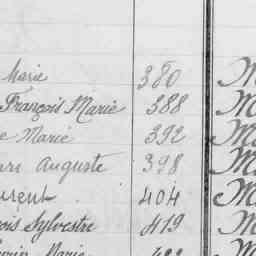 Marie 380 M
François Marie 388 M
Marie 392 M
Auguste 398 M
404 M
Sylvestre 419 M
Marie